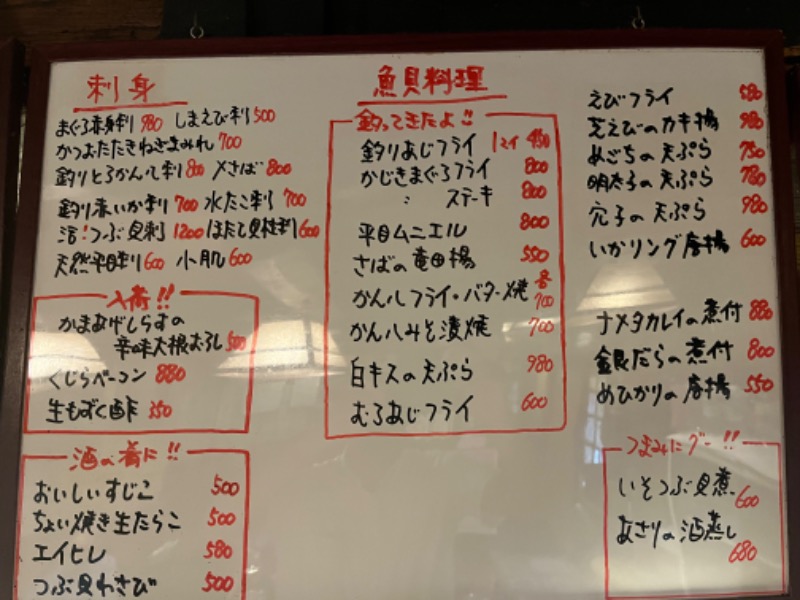 刺身
まぐろ赤身刺 980 しまえび刺 500
かつおたたきねぎまみれ 700
釣りとろかんパち刺 800 〆さば 800
釣り赤いか刺 700 水たこ刺 700
活!つぶ貝刺 1200 ほたて貝柱刺 600
天然平目刺 600 小肌 600
入荷!!
かまあげしらすの
辛味大根おろし 500
くじらベーコン 880
生もずく酢 350
酒の肴に!!
おいしいすじこ 500
ちょい焼き生たらこ 500
エイヒレ 580
つぶ貝わさび 500
魚貝料理
釣ってきたよ!!
釣りあじフライ 1マイ 450
かじきまぐろフライ 800
〃 ステーキ 800
平目ムニエル 800
さばの竜田揚 550
かん八フライ・バター焼 各700
かん八みそ漬焼 700
白キスの天ぷら 980
むろあじフライ 600
えびフライ 580
芝えびのカキ揚 980
めごちの天ぷら 750
明太子の天ぷら 780
穴子の天ぷら 980
いかリング唐揚 600
ナメタカレイの煮付 880
銀だらの煮付 800
めひかりの唐揚 550
つまみにグー!!
いそつぶ貝煮 600
あさりの酒蒸し 680